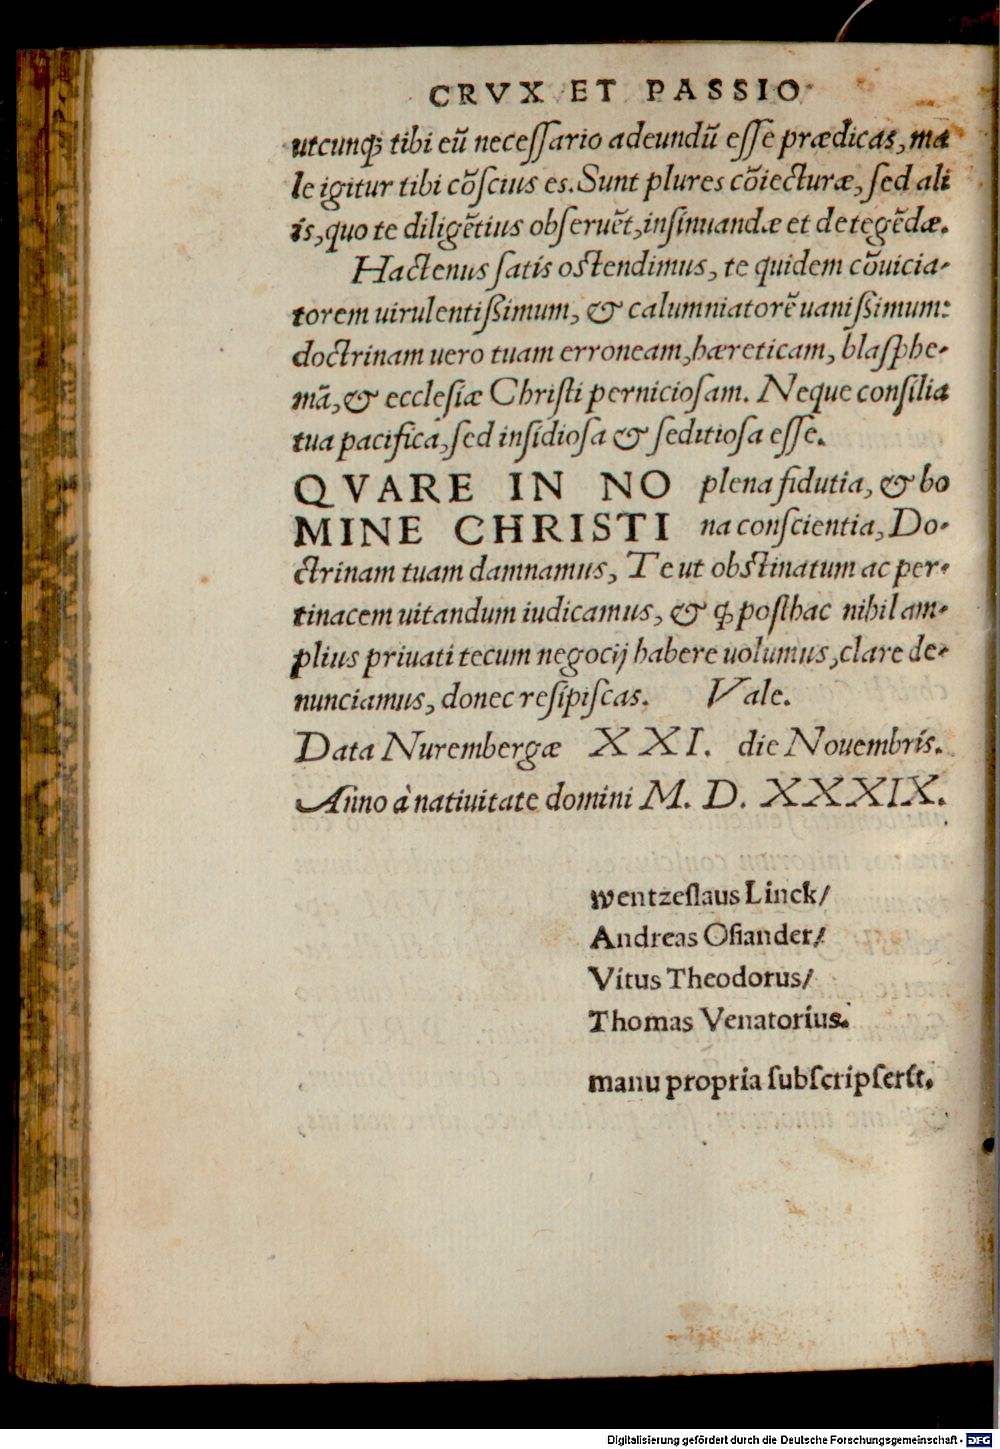 CRVX ET PASSIO
utcunqꝫ tibi eũ neceſſario adeundũ eſſe prædicas, ma
le igitur tibi cõſcius es. Sunt plures cõiecturæ, ſed ali
is, quo te diligẽtius obſeruẽt, inſinuandæ et detegẽdæ.
Hactenus ſatis oſtendimus, te quidem cõuicia-
torem uirulentißimum, & calumniatorẽ uanißimum:
doctrinam uero tuam erroneam, hæreticam, blaſphe-
mã, & eccleſiæ Chriſti pernicioſam. Neque conſilia
tua pacifica, ſed inſidioſa & ſeditioſa eſſe.
QVARE IN NO plena fidutia, & bo
MINE CHRISTI na conſcientia, Do-
ctrinam tuam damnamus, Te ut obſtinatum ac per-
tinacem uitandum iudicamus, & ꝙ poſthac nihil am-
plius priuati tecum negocij habere uolumus, clare de-
nunciamus, donec reſipiſcas. Vale.
Data Nurembergæ XXI. die Nouembris.
Anno à natiuitate domini M. D. XXXIX.
wentzeſlaus Linck/
Andreas Oſiander/
Vitus Theodorus/
Thomas Venatorius.
manu propria ſubſcripſerũt.
Digitalisierung gefördert durch die Deutsche Forschungsgemeinschaft - DFG